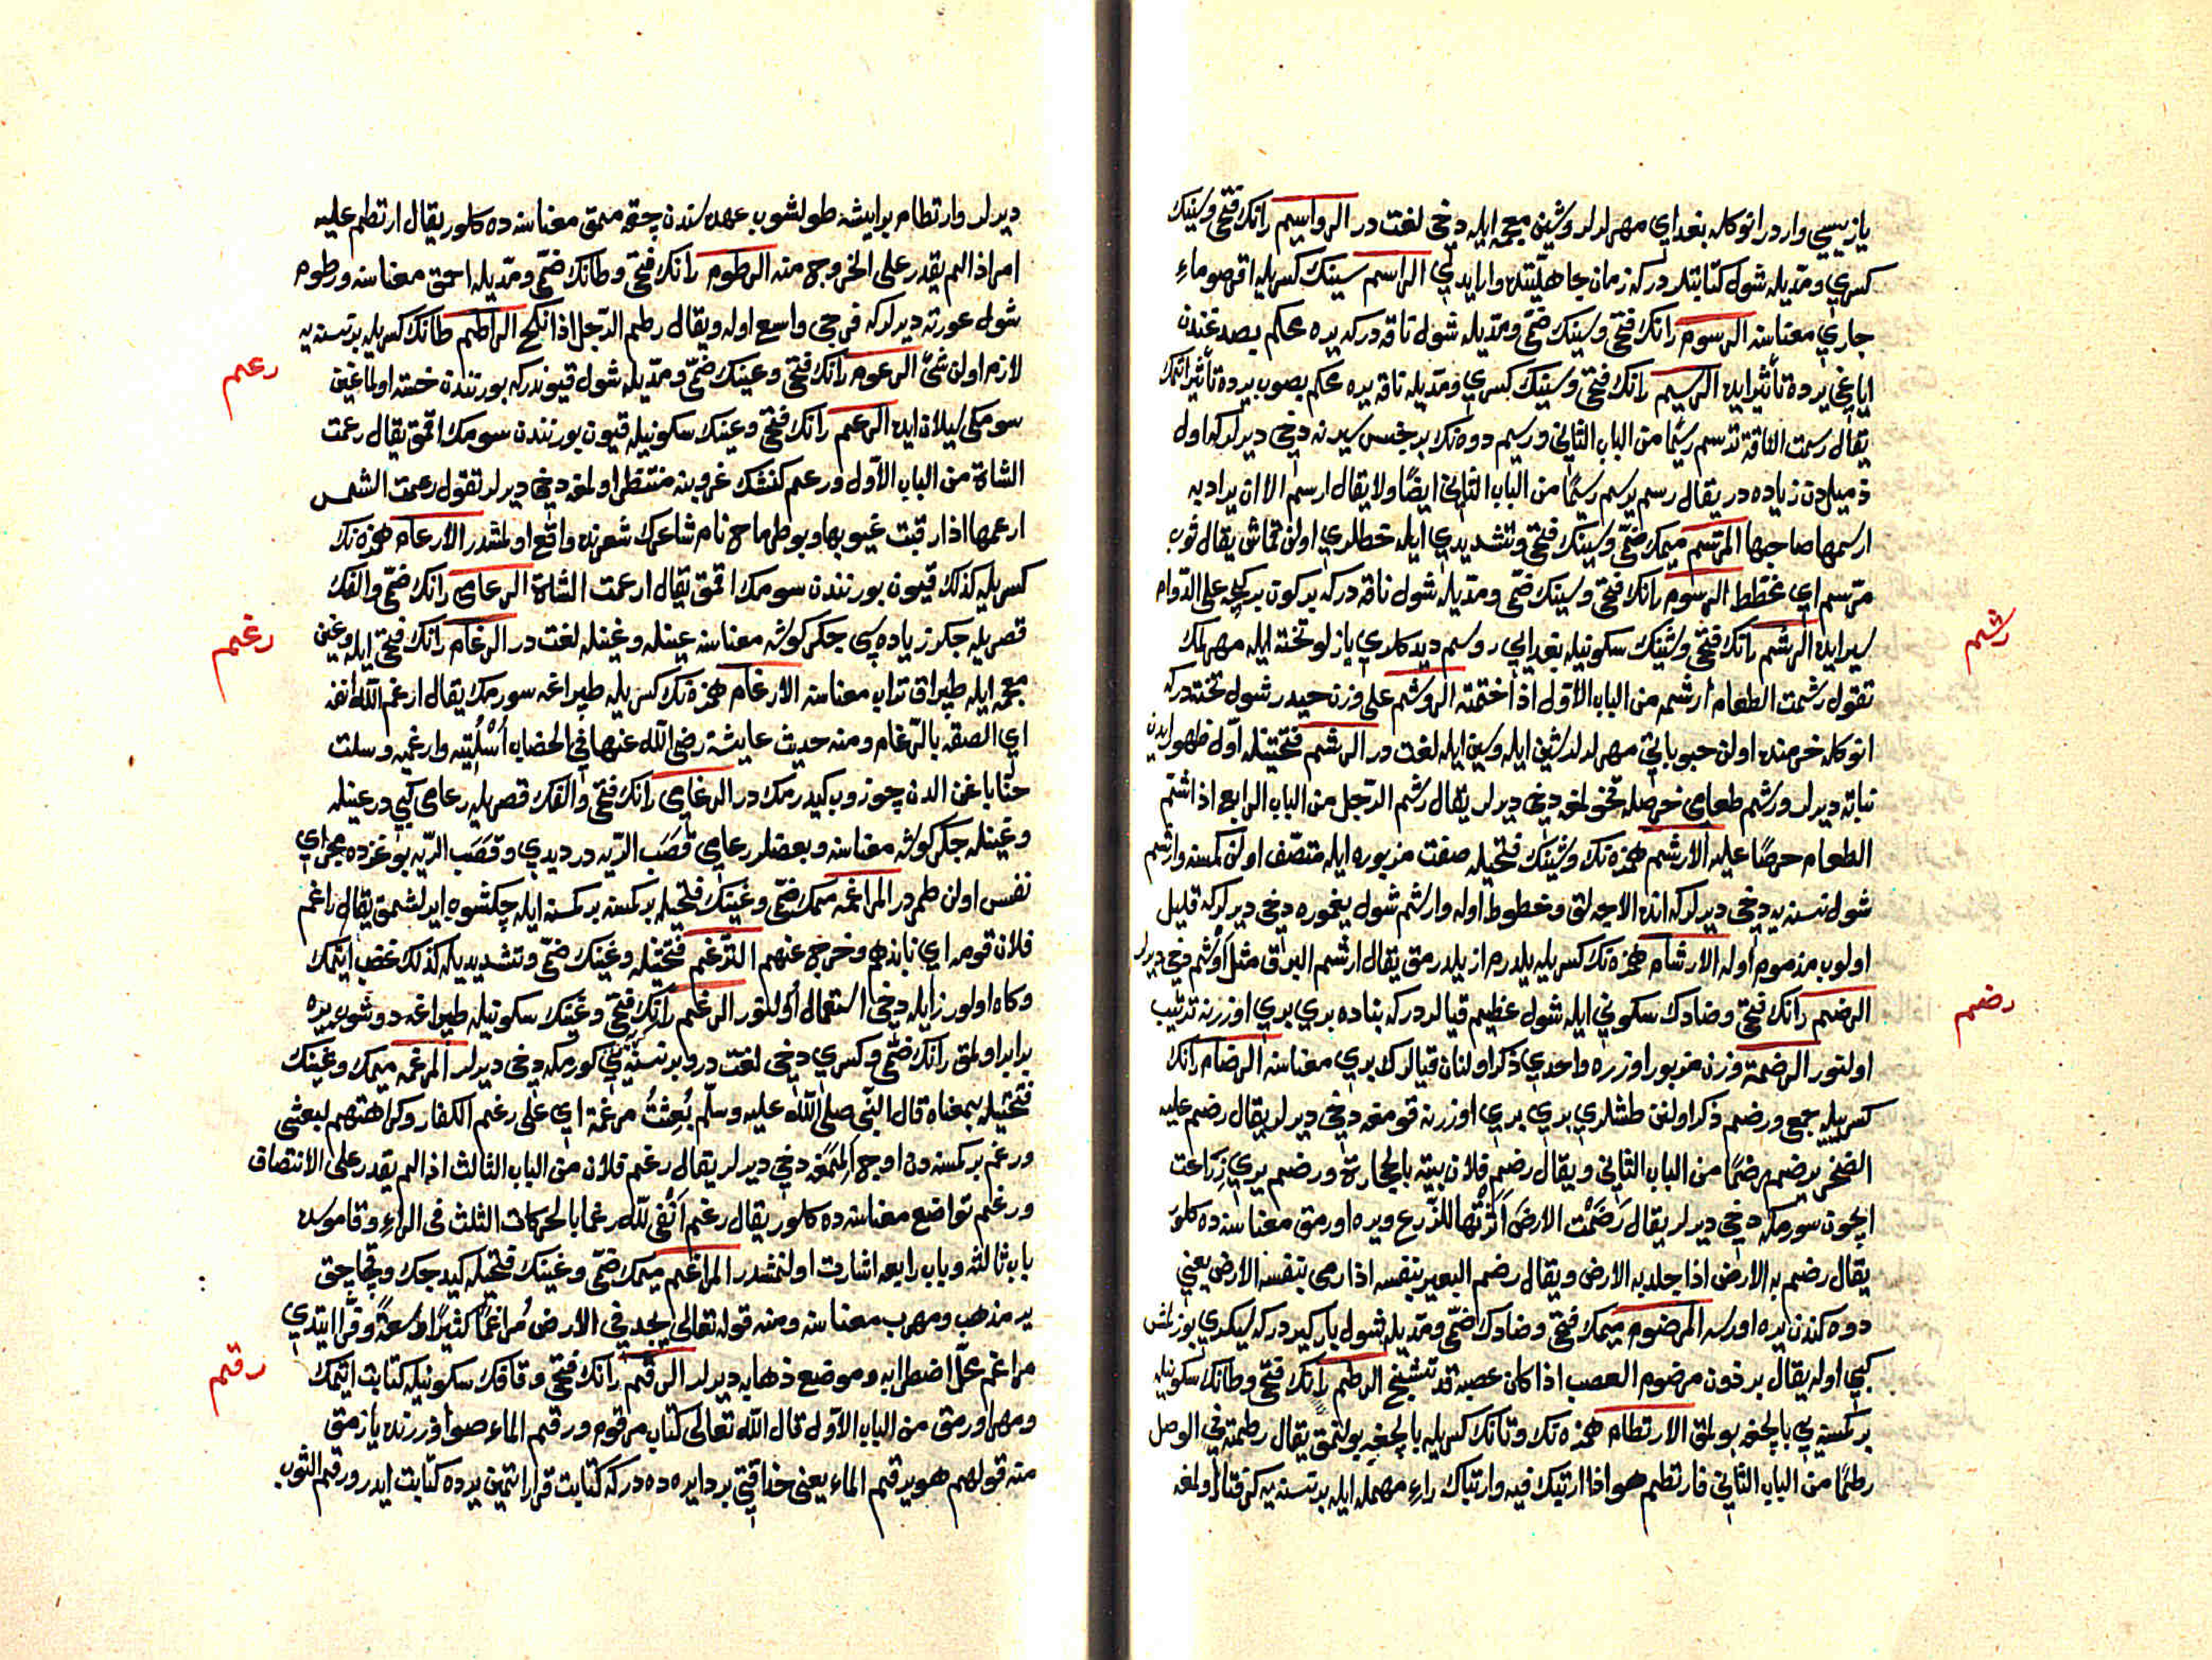 يازيسي واردر انوكله بغداي مهرلرلر وشين معجمه ايله دخي لغت در الرواسيم رانك فتحي وسينك
كسري ومديله شول كتابتلر دركه زمان جاهليتده وار ايدي الراسم سينك كسريله اقر صو ماء
جاري معناسنه الرسوم رانك فتحي وسينك ضمي ومديله شول ناقه دركه يره محكم بصدغندن
اياغي يرده تأثير ايده الرسيم رانك فتحي وسينك كسري ومديله ناقه يره محكم بصوب يرده تأثير اتمك
يقال رسمت الناقة ترسم رسيما من الباب الثاني ورسيم دوه نك بر جنس سيرنه دخي ديرلركه اول
ذميلدن زياده در يقال رسم يرسم رسيما من الباب الثاني ايضا ولا يقال ارسم الا ان يراد به
ارسمها صاحبها المرسم ميمك ضمي وسينك فتحي وتشديدي ايله خطلري اولن قماش يقال ثوب
مرسم اي مخطط الرسوم رانك فتحي وسينك ضمي ومديله شول ناقه دركه بر كون بر كيجه على الدوام
سير ايده الرشم رانك فتحي وشينك سكونيله بغدايي روسم ديدكلري يازلو تخته ايله مهرلمك
رشم
تقول رشمت الطعام ارشمه من الباب الاول اذا ختمته الروشم على وزن حيدر شول تخته دركه
انوكله خرمنده اولن حبوباتي مهرلرلر شين ايله وسين ايله لغت در الرشم فتحتينله اول ظهور ايدن
نباته ديرلر ورشم طعامي حرصله قوخولمغه دخي ديرلر يقال رشم الرجل من الباب الرابع اذا اشتم
الطعام حرصا عليه الارشم همزه نك وشينك فتحيله صفت مزبوره ايله متصف اولن كمسنه وارشم
شول نسنه يه دخي ديرلركه انده الاجه لق وخطوط اوله وارشم شول يغموره دخي ديرلركه قليل
اولوب مذموم اوله الارشام همزه نك كسريله يلدرم از يلدرمق يقال ارشم البرق مثل اوشم دخي ديرلر
الرضم رانك فتحي وضادك سكوني ايله شول عظيم قيالردركه بناده بري بري اوزرنه ترتيب
رضم
اولنور الرضمة وزن مزبور اوزره واحدي ذكر اولنان قيالرك بري معناسنه الرضام رانك
كسريله جمع ورضم ذكر اولنن طشلري بري بري اوزرنه قومغه دخي ديرلر يقال رضم عليه
الصخر يرضم رضما من الباب الثاني ويقال رضم فلان بيته بالحجارة ورضم يري زراعت
ايچون سورمكه دخي ديرلر يقال رضمت الارض اثرتها للزرع ويره اورمق معناسنه ده كلور
يقال رضم به الارض اذا جلد به الارض ويقال رضم البعير بنفسه اذا رمى بنفسه الارض يعني
دوه كندن يره اورسه المرضوم ميمك فتحي وضادك ضمي ومديله شول باركير دركه سيكري بوزلمش
كبي اوله يقال برذون مرضوم العصب اذا كان عصبه قد تشنج الرطم رانك فتحي وطانك سكونيله
بر كمسنه يي بالچغه بولمق الارتطام همزه نك وتانك كسريله بالچغه بولنمق يقال رطمته في الوحل
رطما من الباب الثاني فارتطم هو اذا ارتبك فيه وارتباك راء مهمله ايله بر نسنه يه كرفتار اولمغه
ديرلر وارتطام بر ايشه طولشوب عهده سندن چقه ممق معناسنه ده كلور يقال ارتطم عليه
امر اذا لم يقدر على الخروج منه الرطوم رانك فتحي وطانك ضمي ومديله احمق معناسنه ورطوم
شول عورته ديرلركه فرجي واسع اوله ويقال رطم الرجل اذا نكح الراطم طانك كسريله بر نسنه يه
لازم اولن شئ الرعوم رانك فتحي وعينك ضمي ومديله شول قيوندركه بورنندن خسته اولماغين
رعم
سومكي سيلان ايده الرعم رانك فتحي وعينك سكونيله قيون بورنندن سومك اقمق يقال رعمت
الشاة من الباب الاول ورعم كنشك غروبنه منتظر اولمغه دخي ديرلر تقول رعمت الشمس
ارعمها اذا رقبت غيوبها وبو طرماح نام شاعرك شعرنده واقع اولمشدر الارعام همزه نك
كسريله كذلك قيون بورنندن سومك اقمق يقال ارعمت الشاة الرعامى رانك ضمي والفك
قصريله جكر زياده سي جكر كوشه معناسنه عينله وغينله لغت در الرغام رانك فتحي ايله وغين
رغم
معجمه ايله طپراق تراب معناسنه الارغام همزه نك كسريله طپراغه سورمك يقال ارغم الله انفه
اي الصقه بالرغام ومنه حديث عايشة رضي الله عنها في الخضاب اسلتيه وارغميه وسلت
حنايا غن الدن چوزوب كيدرمك در الرغامى رانك فتحي والفك قصريله رعامى كبي در عينله
وغينله جكر كوشه معناسنه وبعضلر رعامى قصب الريه در ديدي وقصب الريه بوغزده مجراي
نفس اولن طمردر المراغمه ميمك ضمي وغينك فتحيله بر كمسنه بر كمسنه ايله چكشوب ايرلشمق يقال راغم
فلان قومه اي نابذهم وخرج عنهم الترغم فتحتيله وغينك ضمي وتشديديله كذلك غضب ايتمك
وكاه اولور زايله دخي استعمال اولنور الرغم رانك فتحي وغينك سكونيله طپراغه دوشوب يره
برابر اولمق رانك ضمي وكسري دخي لغت در وبر نسنه يي كورمكه دخي ديرلر المرغمه ميمك وغينك
فتحيله بمعناه قال النبي صلى الله عليه وسلم بعثت مرغمة اي على رغم الكفار وكراهتهم لبعثتي
ورغم بر كمسنه دن اوج المغه دخي ديرلر يقال رغم فلان من الباب الثالث اذا لم يقدر على الانتصاف
ورغم تواضع معناسنه ده كلور يقال رغم انفي لله رغما بالحركات الثلث في الراء وقاموسده
باب ثالثه وباب رابعه اشارت اولنمشدر المراغم ميمك ضمي وغينك فتحيله كيدجك وقچاجق
ير مذهب ومهرب معناسنه ومنه قوله تعالى يجد في الارض مراغما كثيرا وسعة وقرا ايتدي
مراغم محل اضطرابه وموضع ذهابه ديرلر الرقم رانك فتحي وقافك سكونيله كتابت ايتمك
رقم
ومهر اورمق من الباب الاول قال الله تعالى كتاب مرقوم ورقم الماء صو اوزرنده يازمق
منه قولهم هو يرقم الماء يعني حذاقتي بر دايره ده دركه كتابت قرار اتمين يرده كتابت ايدر ورقم الثوب